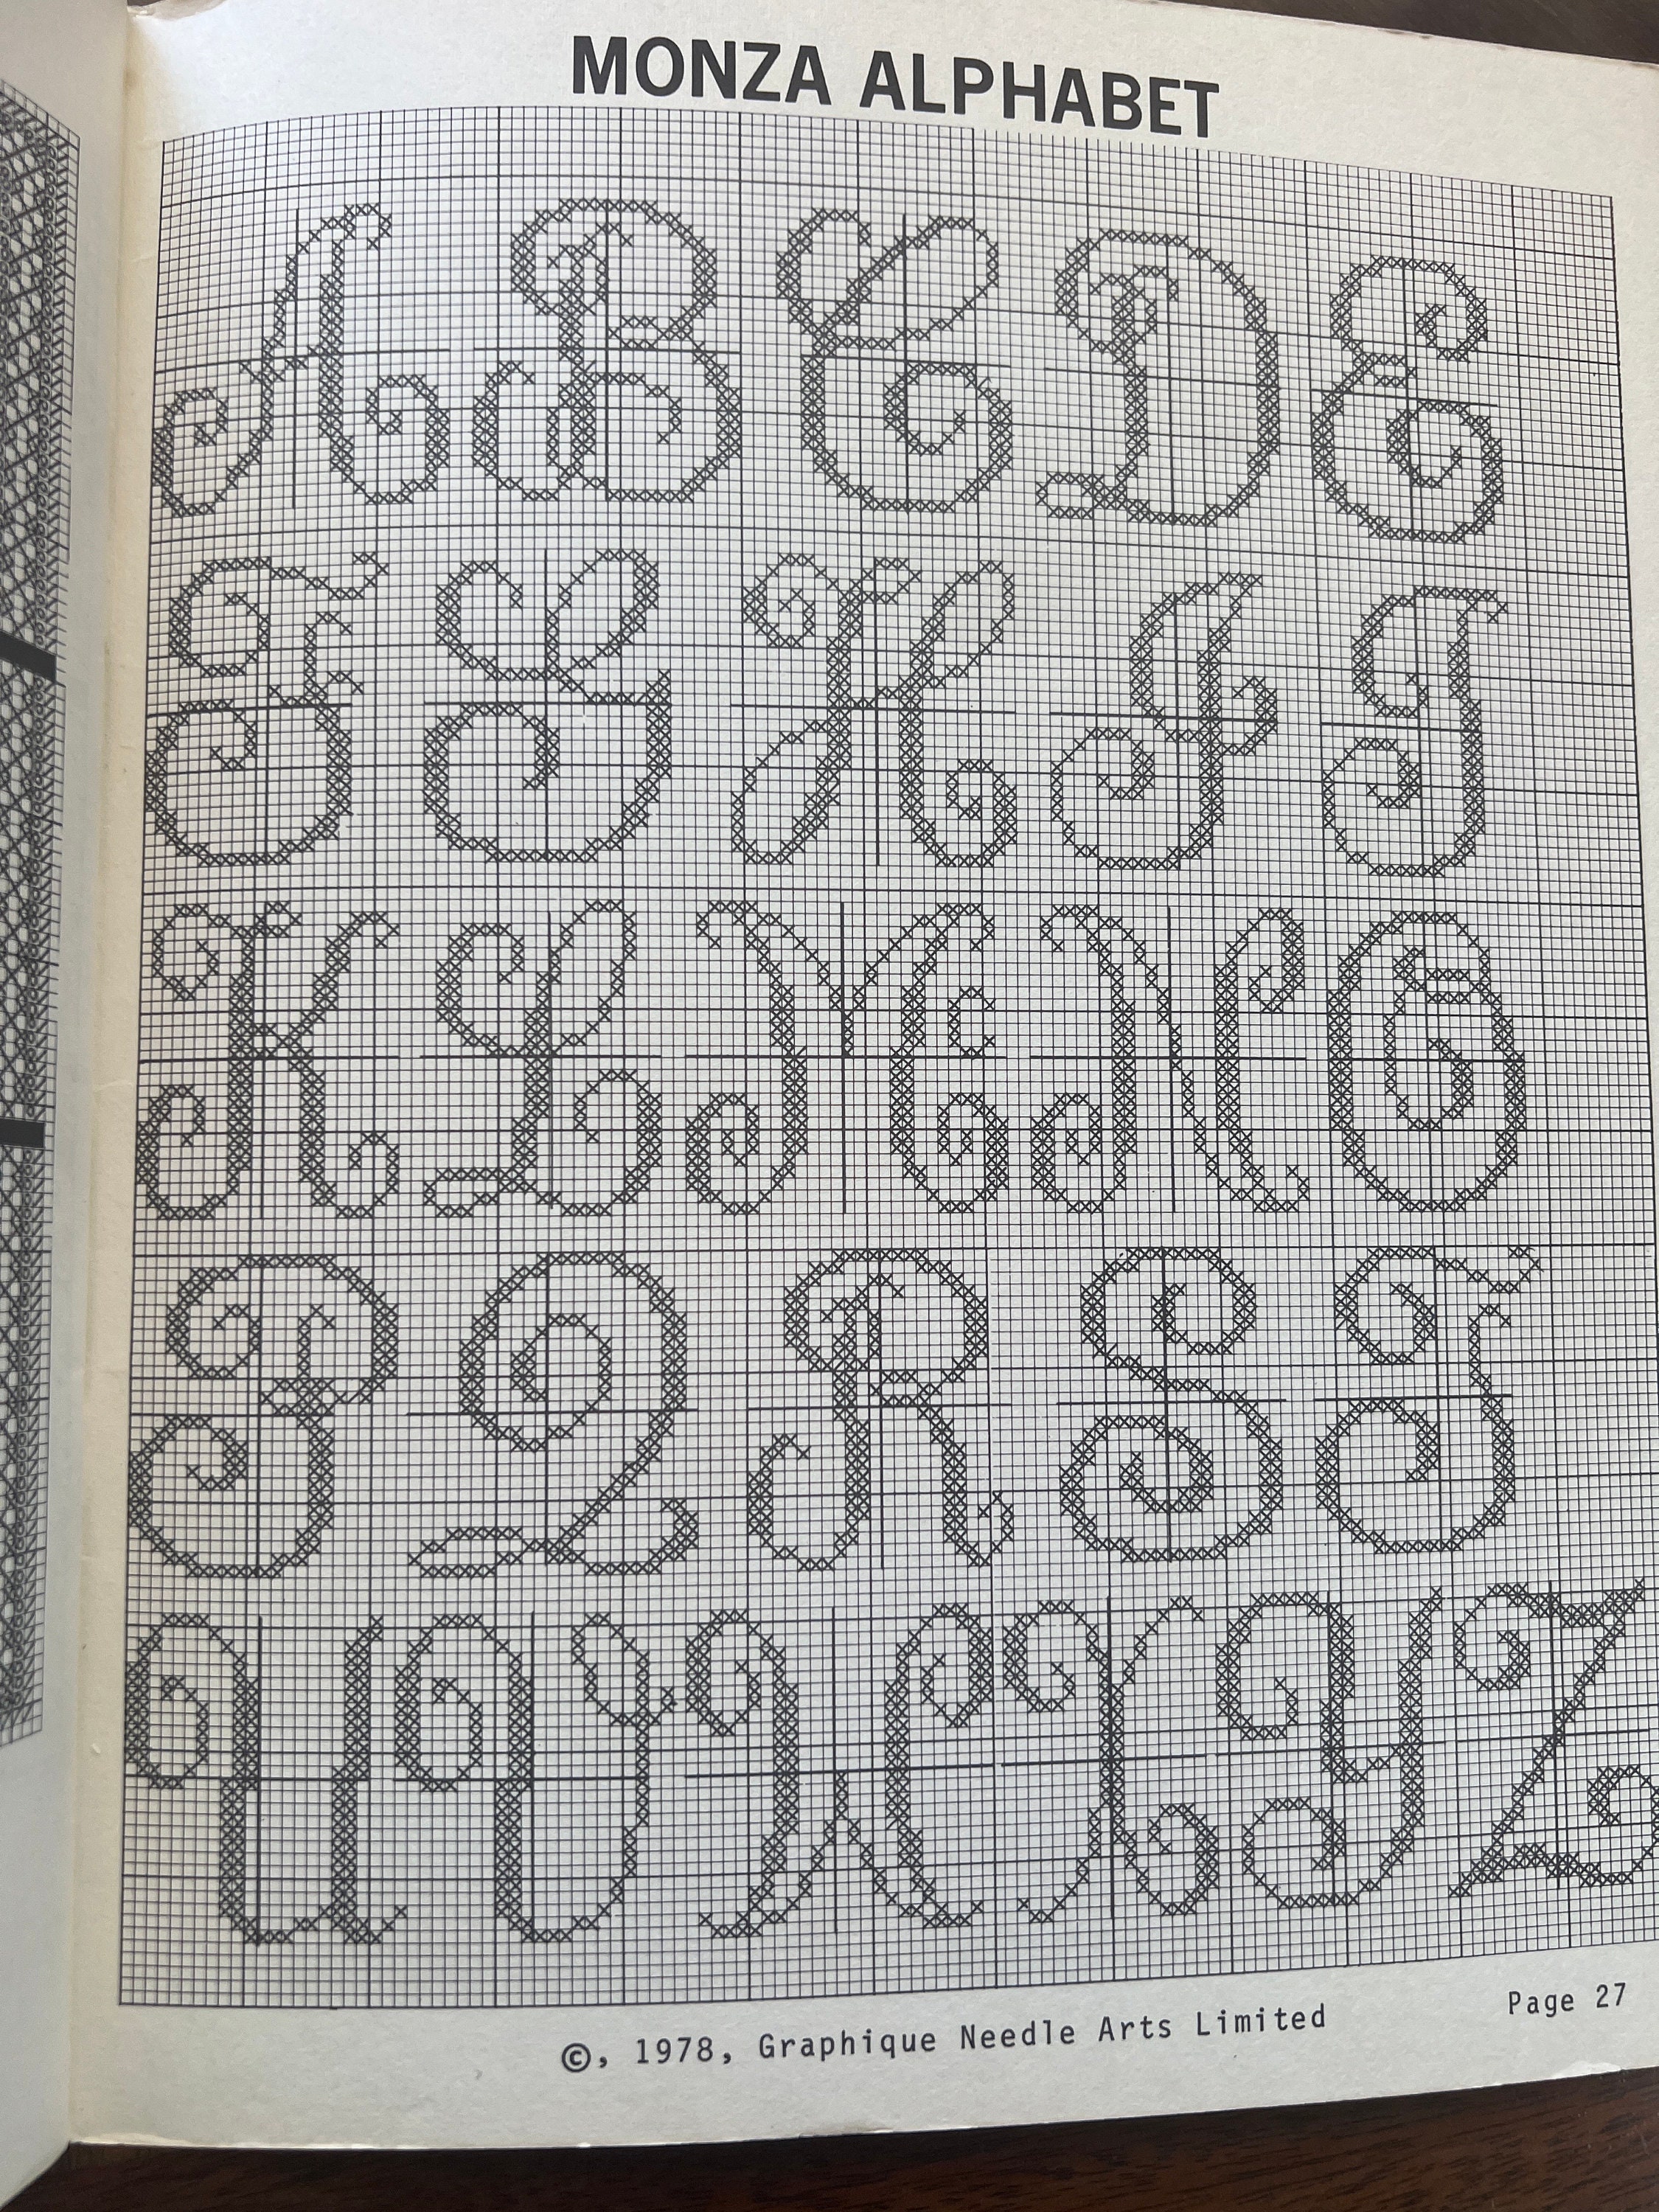 MONZA ALPHABET
A B C D E
F G H I J
K L M N O
P Q R S T
U V W X Y Z
©, 1978, Graphique Needle Arts Limited
Page 27